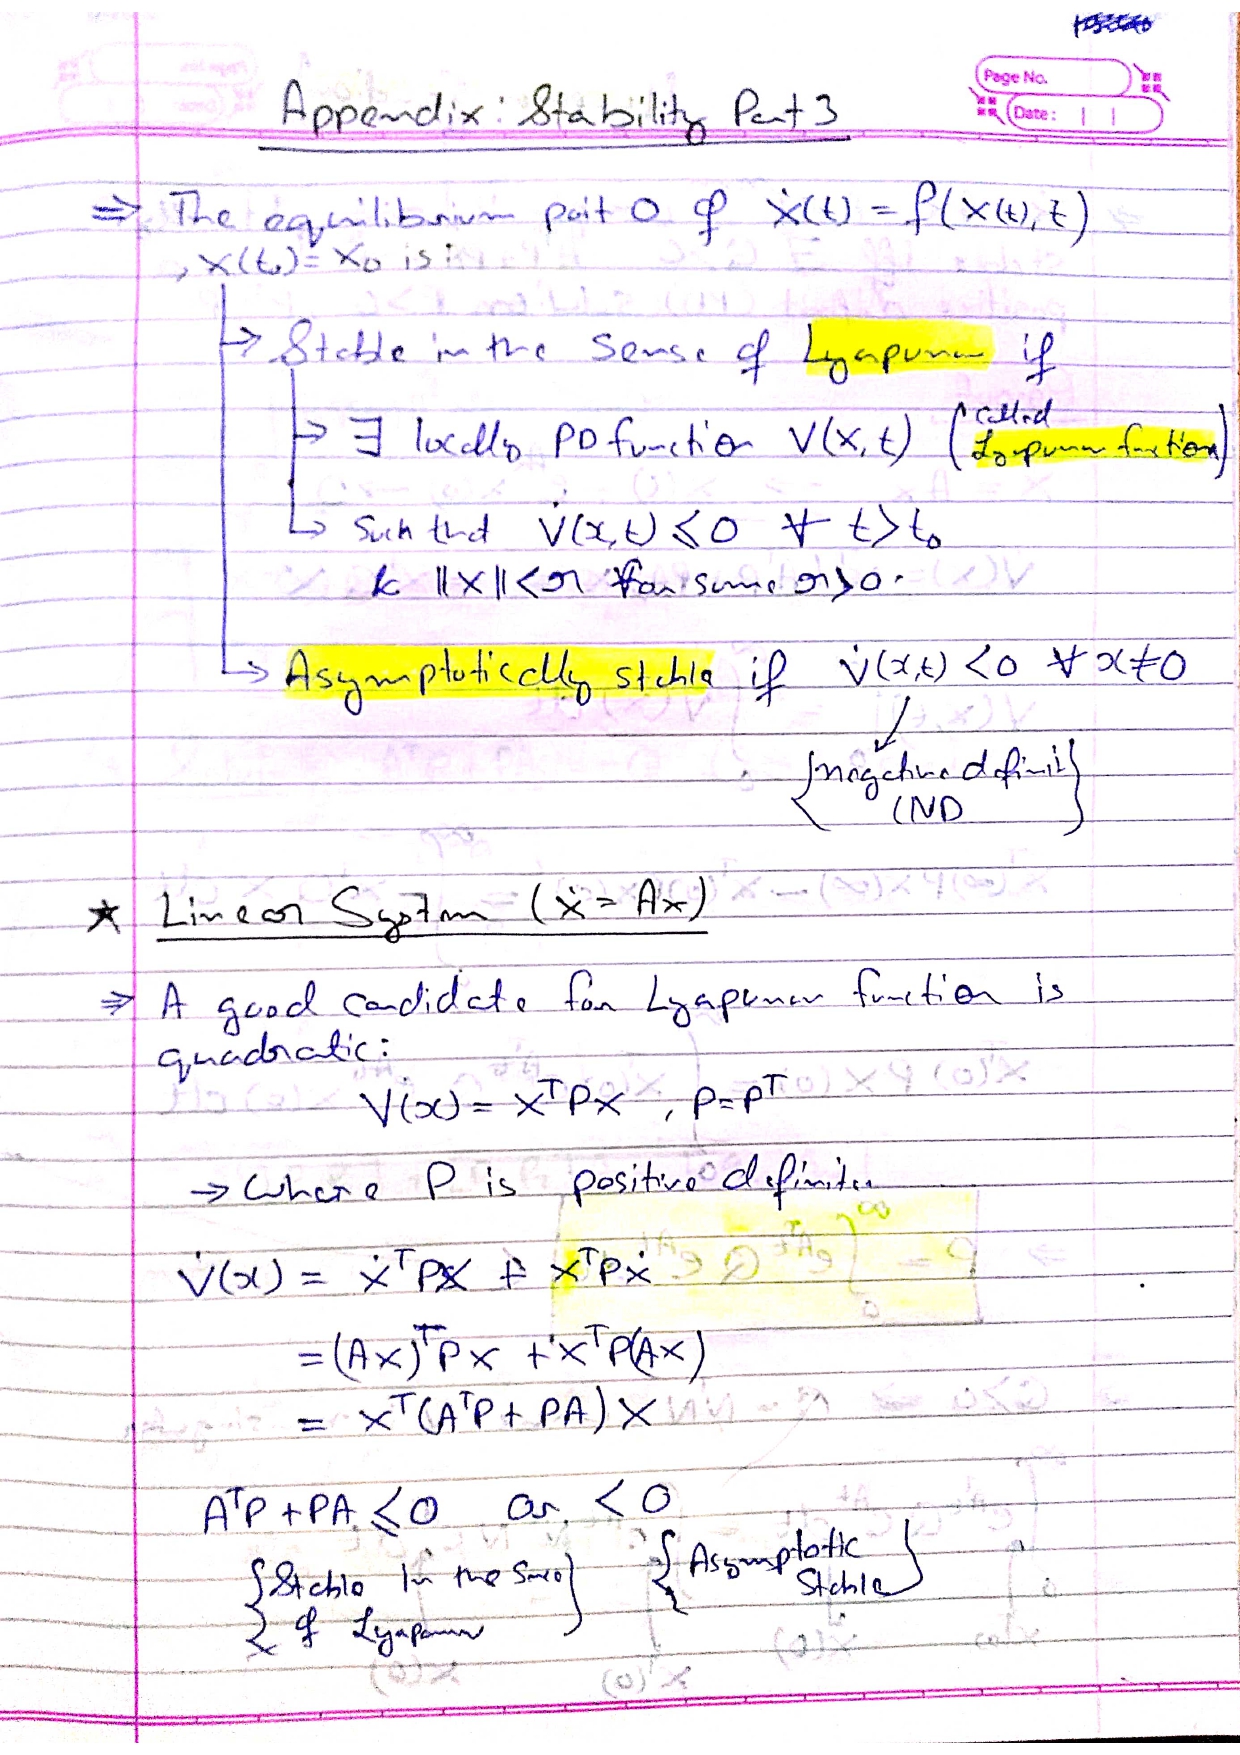 Page No.
Date:
Appendix: Stability Part 3
⇒ The equilibrium point 0 of ẋ(t) = f(x(t), t)
, x(t₀) = x₀ is:
→ Stable in the sense of Lyapunov if
→ ∃ locally PD function V(x, t) (called Lyapunov function)
→ Such that V̇(x,t) ≤ 0 ∀ t > t₀
& ||x|| < r for some r > 0.
→ Asymptotically stable if V̇(x,t) < 0 ∀ x ≠ 0
{negative definit
(ND}
★ Linear System (ẋ = Ax)
⇒ A good candidate for Lyapunov function is
quadratic:
V(x) = xᵀPx , P = Pᵀ
→ where P is positive definite
V̇(x) = ẋᵀPx + xᵀPẋ
= (Ax)ᵀPx + xᵀP(Ax)
= xᵀ(AᵀP + PA)x
AᵀP + PA ≤ 0 or < 0
{Stable in the sense of Lyapunov} {Asymptotic Stable}